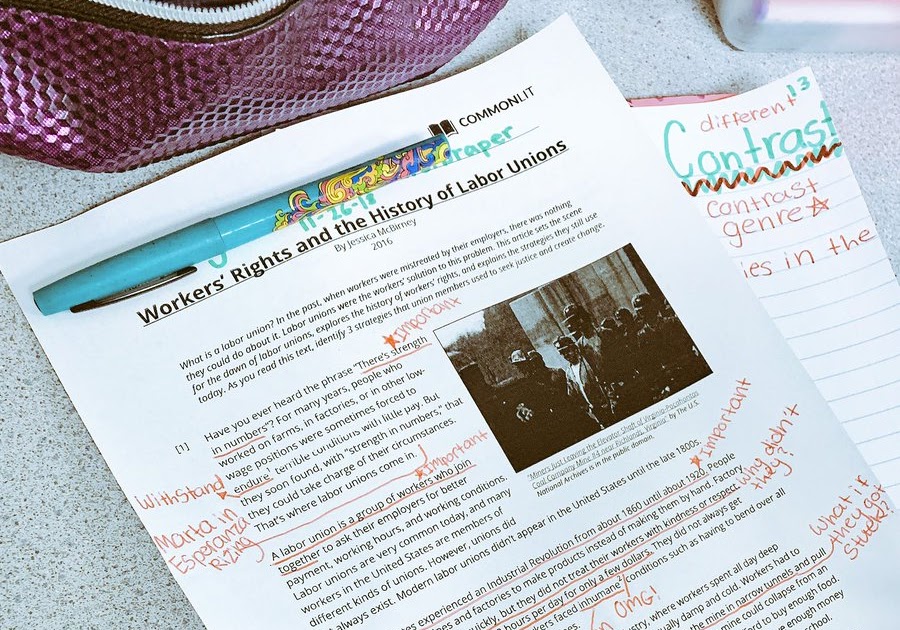 COMMONLIT
raper
11-26-18
Workers' Rights and the History of Labor Unions
By Jessica McBirney
2016
What is a labor union? In the past, when workers were mistreated by their employers, there was nothing
they could do about it. Labor unions were the workers' solution to this problem. This article sets the scene
for the dawn of labor unions, explores the history of workers' rights, and explains the strategies they still use
today. As you read this text, identify 3 strategies that union members used to seek justice and create change.
Important
[1] Have you ever heard the phrase "There's strength
in numbers"? For many years, people who
worked on farms, in factories, or in other low-
wage positions were sometimes forced to
endure terrible conditions with little pay. But
they soon found, with "strength in numbers," that
they could take charge of their circumstances.
That's where labor unions come in.
Withstand
Important
Marta in
Esperanza
Rizing
A labor union is a group of workers who join
together to ask their employers for better
payment, working hours, and working conditions.
Labor unions are very common today, and many
workers in the United States are members of
different kinds of unions. However, unions did
always exist. Modern labor unions didn't appear in the United States until the late 1800s.
"Miners Just Leaving the Elevator Shaft of Virginia-Pocahontas
Coal Company Mine #4 near Richlands, Virginia" by The U.S.
National Archives is in the public domain.
Important
Why didn't
they?
es experienced an Industrial Revolution from about 1860 until about 1920. People
ines and factories to make products instead of making them by hand. Factory
quickly, but they did not treat their workers with kindness or respect.
hours per day for only a few dollars. They did not always get
kers faced inhumane conditions such as having to bend over all
OMG!
What if
they got
stuck?
ustry, where workers spent all day deep
ually damp and cold. Workers had to
the mine in narrow tunnels and pull
mine could collapse from an
ford to buy enough food.
e enough money
school.
different 13
Contrast
contrast
genre
ies in the